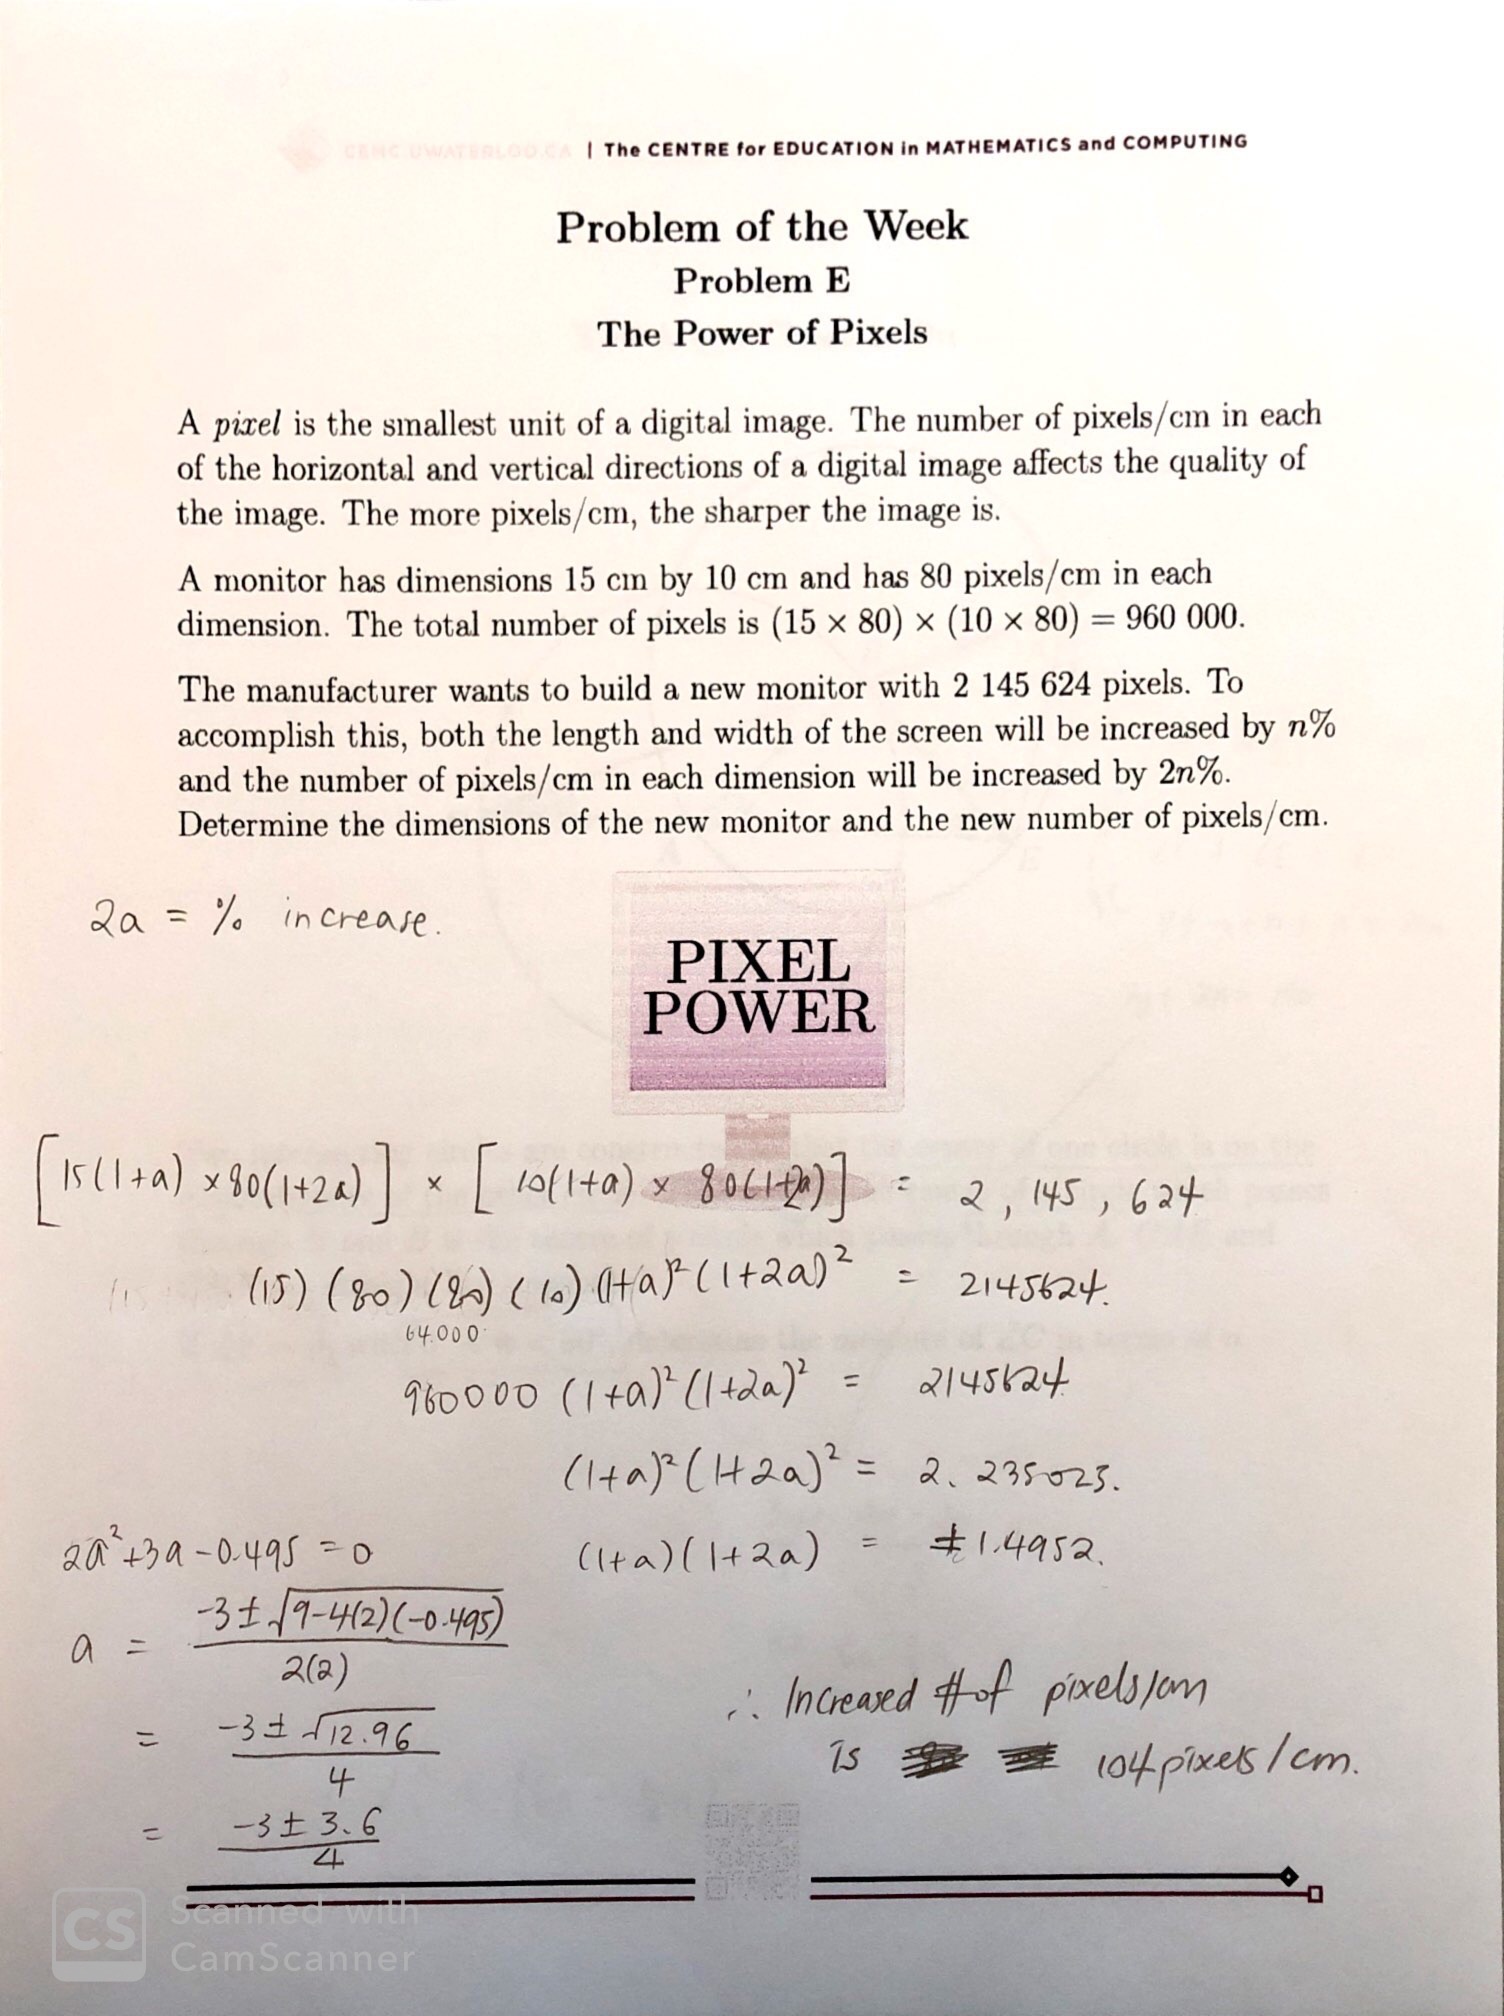 CEMC.UWATERLOO.CA | The CENTRE for EDUCATION in MATHEMATICS and COMPUTING
Problem of the Week
Problem E
The Power of Pixels
A pixel is the smallest unit of a digital image. The number of pixels/cm in each
of the horizontal and vertical directions of a digital image affects the quality of
the image. The more pixels/cm, the sharper the image is.
A monitor has dimensions 15 cm by 10 cm and has 80 pixels/cm in each
dimension. The total number of pixels is (15 × 80) × (10 × 80) = 960 000.
The manufacturer wants to build a new monitor with 2 145 624 pixels. To
accomplish this, both the length and width of the screen will be increased by n%
and the number of pixels/cm in each dimension will be increased by 2n%.
Determine the dimensions of the new monitor and the new number of pixels/cm.
2a = % increase.
PIXEL
POWER
[15(1+a) × 80(1+2a)] × [10(1+a) × 80(1+2a)] = 2,145,624
(15)(80)(80)(10)(1+a)²(1+2a)² = 2145624.
64000
960000 (1+a)²(1+2a)² = 2145624
(1+a)²(1+2a)² = 2.235025.
(1+a)(1+2a) = ±1.4952.
2a²+3a-0.495 = 0
a = -3±√9-4(2)(-0.495)
2(2)
= -3±√12.96
4
= -3±3.6
4
∴ Increased # of pixels/cm
is 104 pixels/cm.
CS Scanned with
CamScanner